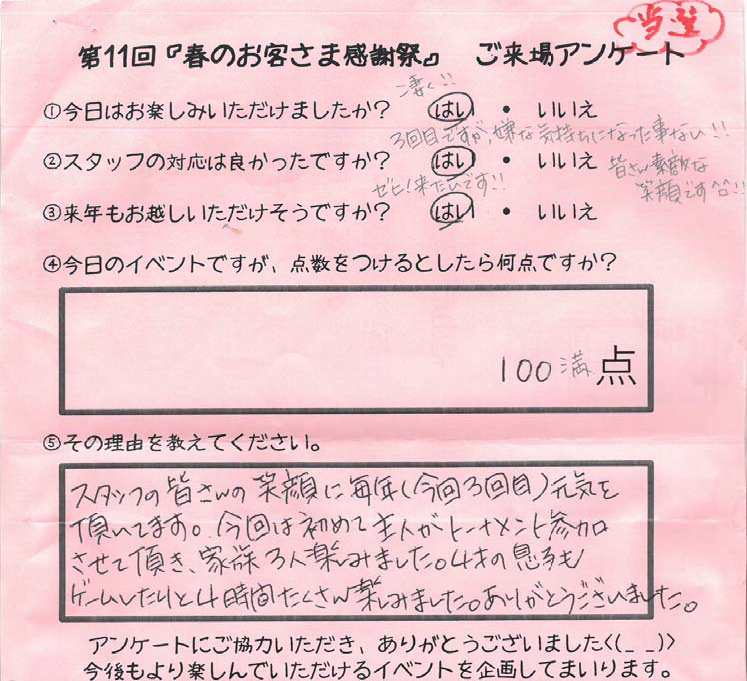 当選
第11回『春のお客さま感謝祭』 ご来場アンケート
凄く!!
①今日はお楽しみいただけましたか? はい ・ いいえ
3回目ですが、嫌な気持ちになった事ない!!
②スタッフの対応は良かったですか? はい ・ いいえ
皆さん素敵な
笑顔です^^!!
ゼヒ!来たいです!!
③来年もお越しいただけそうですか? はい ・ いいえ
④今日のイベントですが、点数をつけるとしたら何点ですか?
100満点
⑤その理由を教えてください。
スタッフの皆さんの笑顔に毎年(今回3回目)元気を
頂いてます。今回は初めて主人がトーナメント参加
させて頂き、家族3人楽しみました。4才の息子も
ゲームしたりと4時間たくさん楽しみました。ありがとうございました。
アンケートにご協力いただき、ありがとうございました<(_ _)>
今後もより楽しんでいただけるイベントを企画してまいります。